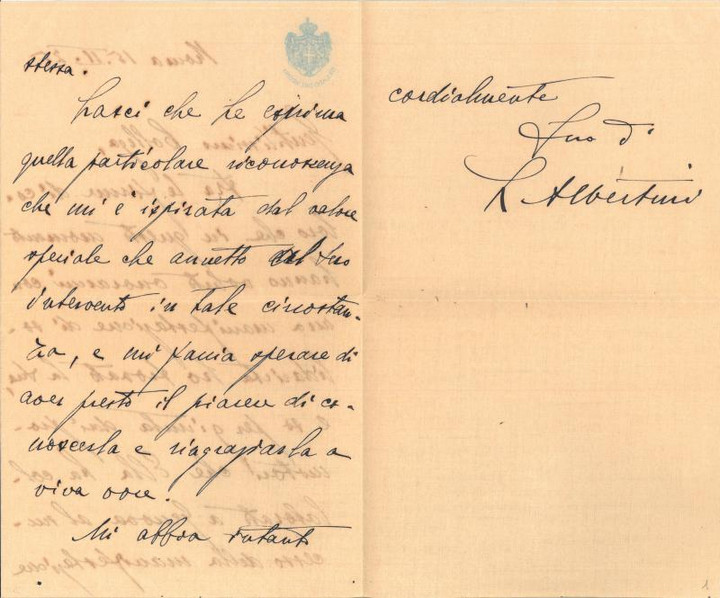 stessa.
Lasci che Le esprima
quella particolare riconoscenza
che mi è ispirata dal valore
speciale che annetto al Suo
intervento in tale circostan-
za, e mi faccia sperare di
aver presto il piacere di co-
noscerla e ringraziarla a
viva voce.
Mi abbia intanto
cordialmente
Suo
L Albertini